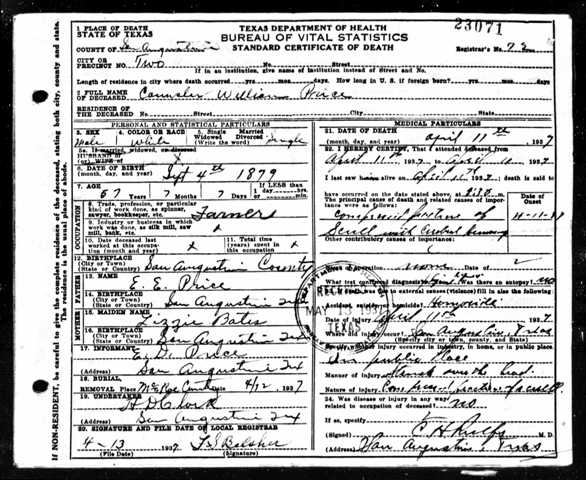 1 PLACE OF DEATH
STATE OF TEXAS
TEXAS DEPARTMENT OF HEALTH
BUREAU OF VITAL STATISTICS
STANDARD CERTIFICATE OF DEATH
23071
COUNTY OF San Augustine
Registrar's No. 73
CITY OR PRECINCT NO. Two No. Street
If in an institution, give name of institution instead of Street and No.
Length of residence in city where death occurred yrs. mos. days. How long in U. S. if foreign born? yrs. mos. days
2 FULL NAME OF DECEASED William Price
RESIDENCE OF THE DECEASED No. Street City State
PERSONAL AND STATISTICAL PARTICULARS
3. SEX Male
4. COLOR OR RACE White
5. Single Married Widowed Divorced (Write the word) Single
5a. If married, widowed or divorced
HUSBAND of
(or) WIFE of x
6. DATE OF BIRTH (month, day, year) Sept 4th 1879
7. AGE 57 Years 7 Months 7 Days If LESS than 1 day hrs. min.
OCCUPATION
8. Trade, profession, or particular kind of work done, as spinner, sawyer, bookkeeper, etc. Farmer
9. Industry or business in which work was done, as silk mill, saw mill, bank, etc. x
10. Date deceased last worked at this occupation (month and year) x
11. Total time (years) spent in this occupation x
12. BIRTHPLACE (City or Town) (State or Country) San Augustine County
FATHER
13. NAME E. E. Price
14. BIRTHPLACE (City or Town) (State or Country) San Augustine Tex
MOTHER
15. MAIDEN NAME Lizzie Bates
16. BIRTHPLACE (City or Town) (State or Country) San Augustine Tex
17. INFORMANT E. D. Price
(Address) San Augustine Tex
18. BURIAL, REMOVAL Place 4/12 1937
19. UNDERTAKER H D Clark
(Address) San Augustine Tex
20. SIGNATURE AND FILE DATE OF LOCAL REGISTRAR
4-13 1937 Belsher
(File Date) (Signature)
MEDICAL PARTICULARS
21. DATE OF DEATH (month, day, year) April 11th 1937
22. I HEREBY CERTIFY, That I attended deceased from
April 11th 1937 to April 11 1937
I last saw him alive on April 11th death is said to
have occurred on the date stated above, at
The principal cause of death and related causes of importance were as follows: Date of Onset
Compressed fracture of 4-11-37
Other contributory causes of importance:
Name of operation none Date of
What test confirmed diagnosis? Was there an autopsy? no
23. If death was due to external causes (violence) fill in also the following:
Accident, suicide, or homicide?
Date of injury April 11th 1937
Where did injury occur? San Augustine, Texas
(Specify city or town, county, and State)
Specify whether injury occurred in industry, in home, or in public place
In public place
Manner of injury
Nature of injury Compressed fracture of skull
24. Was disease or injury in any way related to occupation of deceased? no
If so, specify
(Signed) M.D.
(Address) San Augustine, Texas
RECEIVED
MAY
TEXAS
IF NON-RESIDENT, be careful to give the complete residence of the deceased, stating both city, county and state. The residence is the usual place of abode.